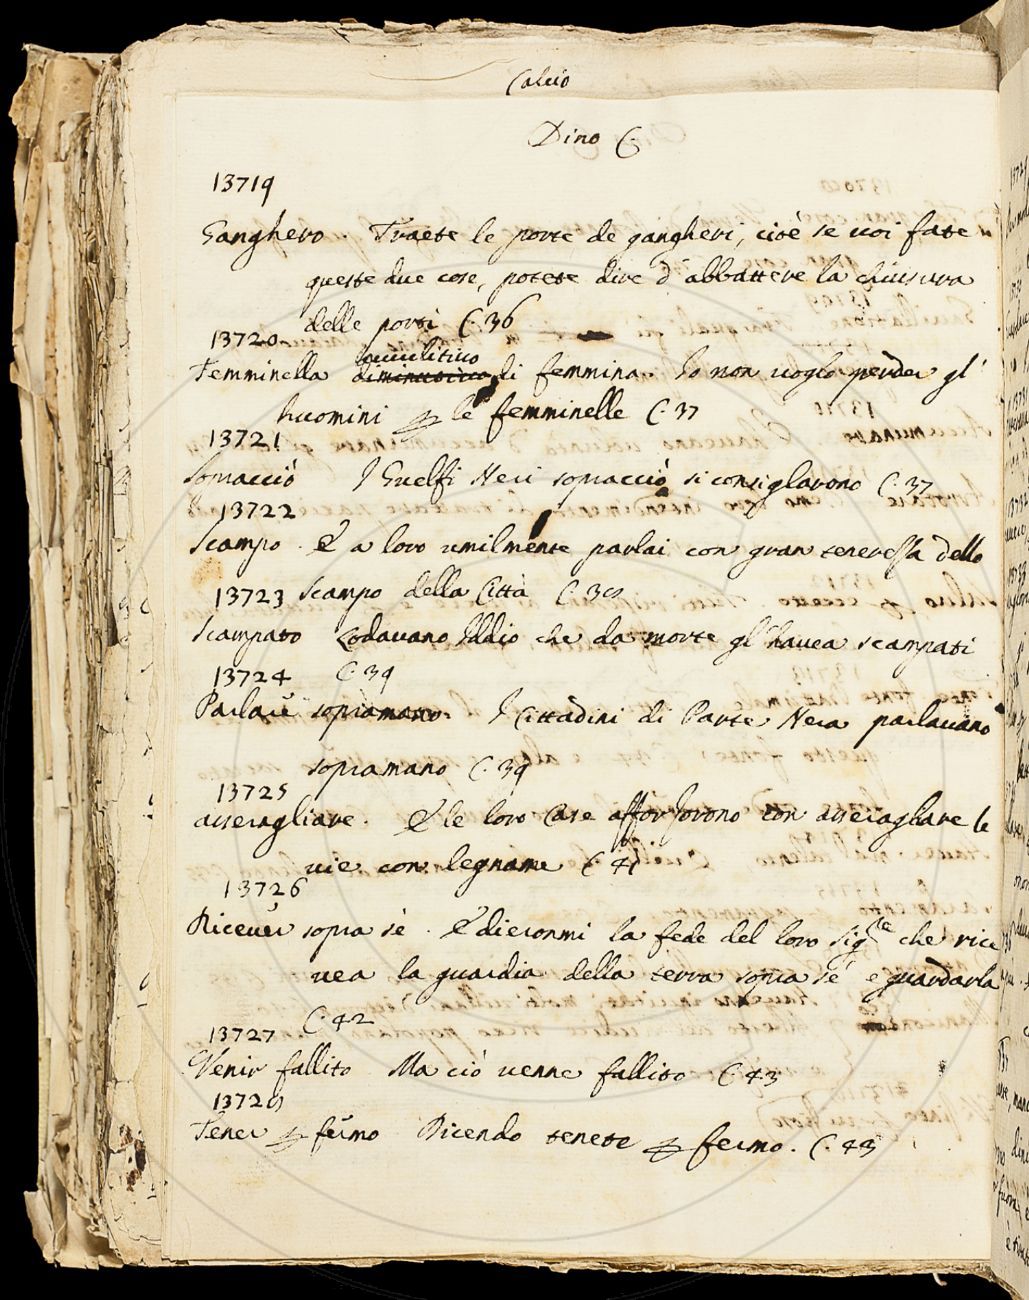 Calcio
Dino C.
13719
Ganghero. Traete le porte de gangheri, cioè se voi fate
queste due cose, potete dire d'abbattere la chiusura
delle porti C. 36
13720
avvilitivo
Femminella diminutivo di femmina. Io non voglo perder gl'
huomini p le femminelle C. 37
13721
Sopracciò I Guelfi Neri sopracciò si consiglavono C. 37
13722
Scampo. E a loro umilmente parlai con gran teneressa dello
scampo della Città C. 38
13723
Scampato Lodavano Iddio che da morte gl'havea scampati
C. 39
13724
Parlare sopramano. I Cittadini di Parte Nera parlavano
sopramano C. 39
13725
asseragliare. E le loro Case afforzorono con asseraglare le
vie con legname C. 41
13726
Ricever sopra sè. E dieronmi la fede del loro Sig.re che rice
vea la guardia della terra sopra sé e guardarla
C. 42
13727
Venir fallito Ma ciò venne fallito C. 43
13728
Tener p fermo Dicendo tenete p fermo. C. 43